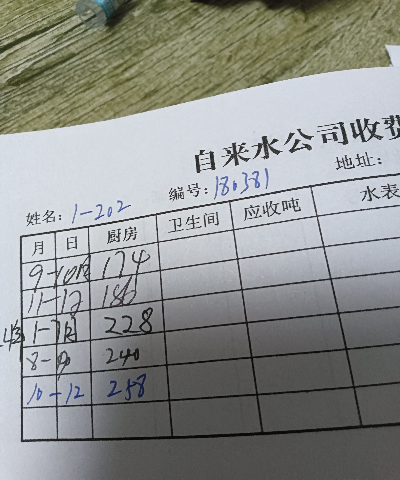 自来水公司收费
姓名: 1-202 编号: 180381 地址:
月 日 厨房 卫生间 应收吨 水表
9-10月 174
11-12 186
1-7月 228
8-9 240
10-12 258